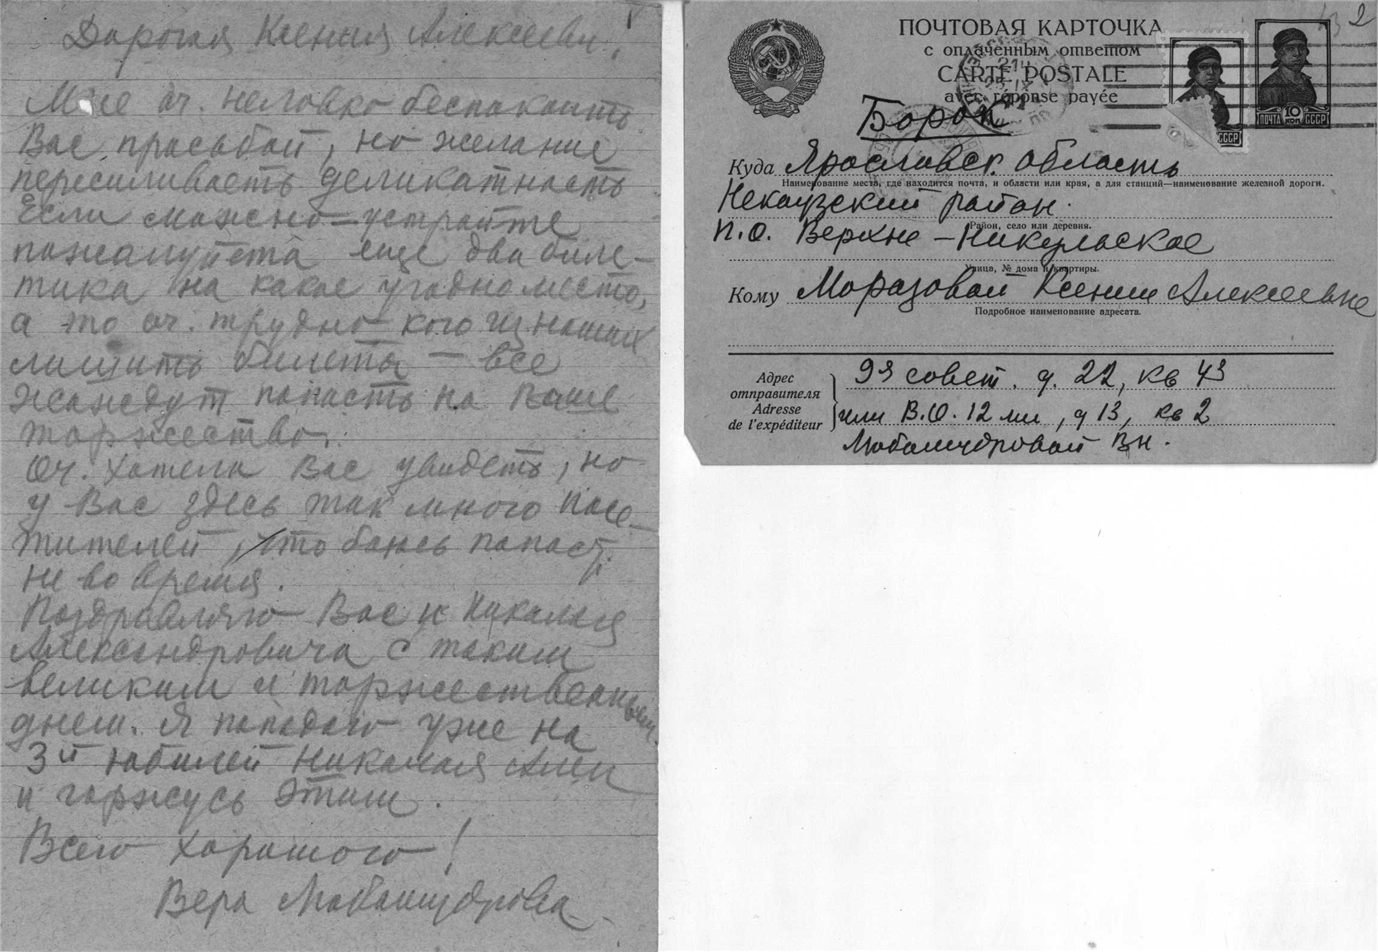 Дорогая Ксения Алексеевн,
Мне оч. неловко беспокоить
Вас просьбой, но желание
пересиливает деликатность
Если можно устройте
пожалуйста еще два биле-
тика на какое угодно место,
а то оч. трудно кого из наших
лишить билета – все
жаждут попасть на Ваше
торжество.
Оч. хотела Вас увидеть, но
у Вас здесь так много посе-
тителей, что боюсь попасть
не во время.
Поздравляю Вас и Николая
Александровича с таким
великим и торжественным
днем. Я попадаю уже на
3й юбилей Николая Алек
и горжусь этим.
Всего хорошего!
Вера Любомудрова
2
ПОЧТОВАЯ КАРТОЧКА
с оплаченным ответом
CARTE POSTALE
avec réponse payée
ПОЧТА 10 КОП. СССР
СССР
Борок
Куда Ярославск. область
Наименование места, где находится почта, и области или края, а для станций—наименование железной дороги.
Некоузский район.
Район, село или деревня.
п.о. Верхне – Никульское
Улица, № дома и квартиры.
Кому Морозовой Ксении Алексеевне
Подробное наименование адресата.
Адрес отправителя
Adresse de l'expéditeur
9я совет. д. 22, кв 43
или В.О. 12 ли, д 13, кв 2
Любомудровой Вн.